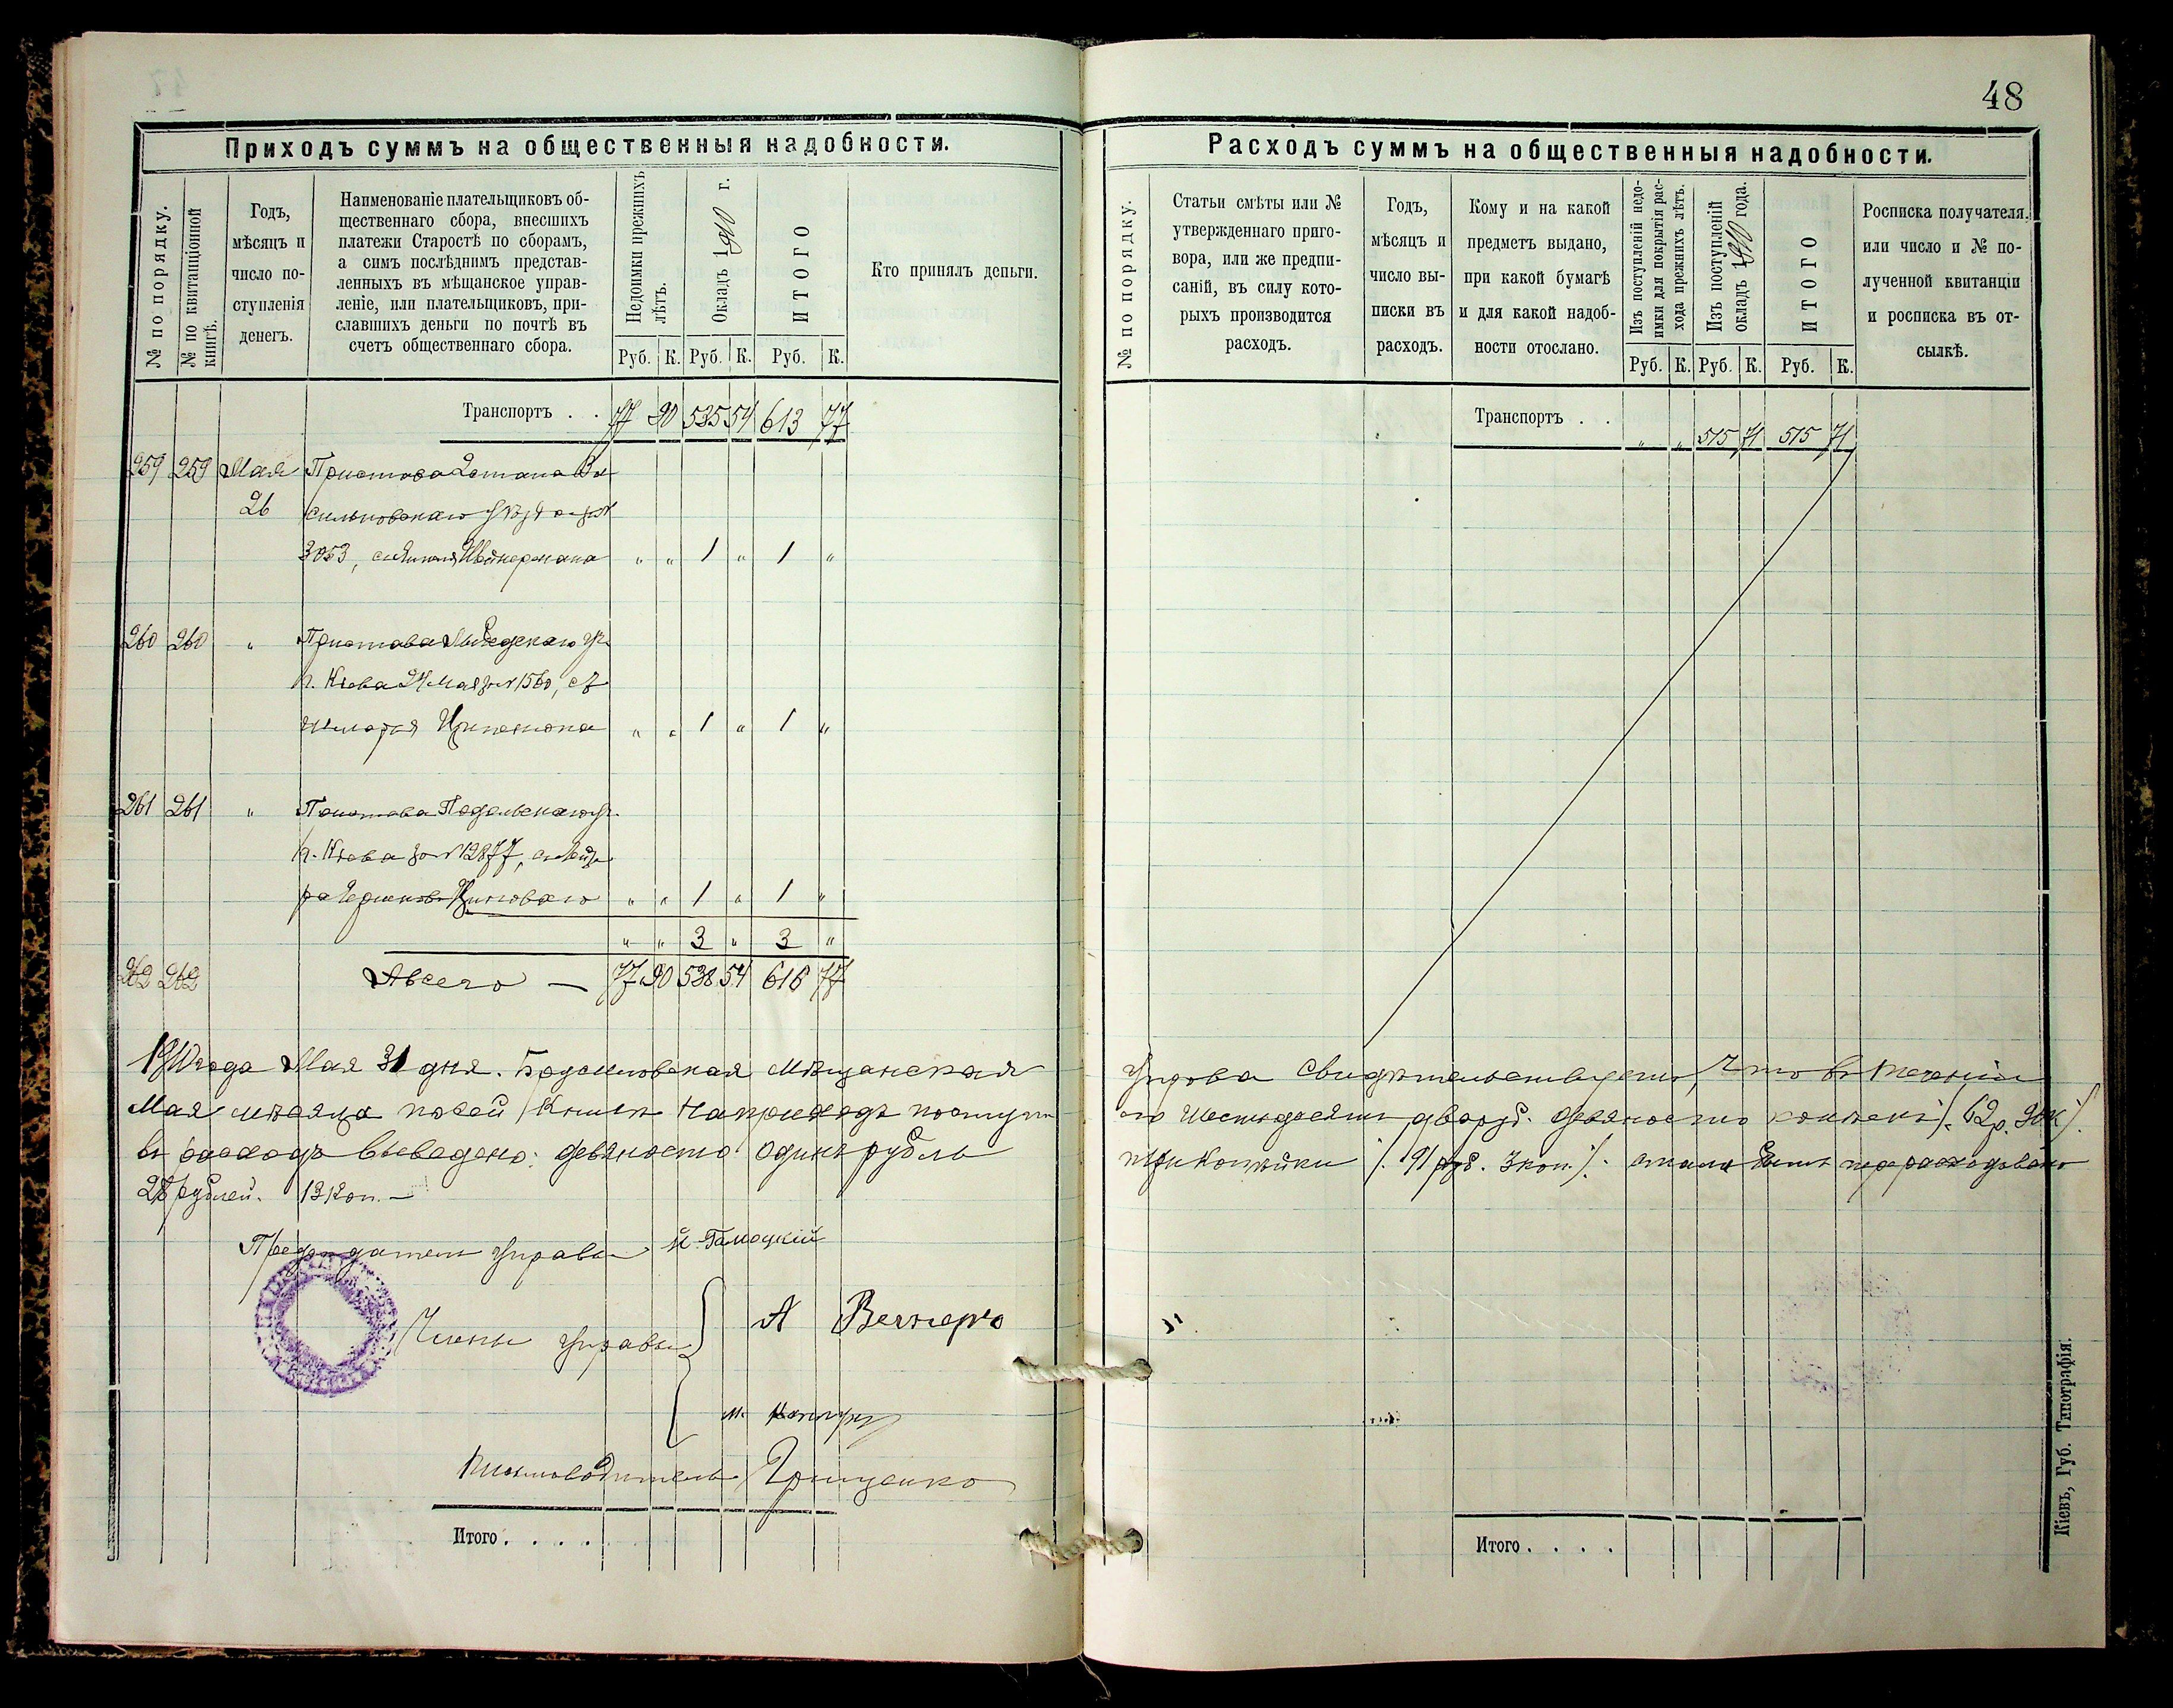 48
Приходъ суммъ на общественныя надобности.
№ по порядку.
№ по квитанціонной
книгѣ.
Годъ,
мѣсяцъ и
число по-
ступленія
денегъ.
Наименованіе плательщиковъ об-
щественнаго сбора, внесшихъ
платежи Старостѣ по сборамъ,
а симъ послѣднимъ представ-
ленныхъ въ мѣщанское управ-
леніе, или плательщиковъ, при-
славшихъ деньги по почтѣ въ
счетъ общественнаго сбора.
Недоимки прежнихъ
лѣтъ.
Окладъ 1910 г.
ИТОГО
Кто принялъ деньги.
Руб. К. Руб. К. Руб. К.
Транспортъ . . 77 90 535 54 613 77
259 259 Мая Пристава 2 стана Ва
26 сильковскаго уѣзда за №
3053, съ " " 1 " 1 "
260 260 " Пристава Лыбедскаго уч.
г. Кіева 24 Мая за № 1560, съ
" " 1 " 1 "
261 261 " Пристава Подольскаго уч.
г. Кіева за № 12877, съ
" " 1 " 1 "
" " 3 " 3 "
262 262 А всего — 77 90 538 54 616 77
1910 года Мая 31 дня. Мѣщанская
Мая мѣсяца по сей Книгѣ на приходъ поступи
въ расходъ выведено: девяносто одинъ рубль
28 рублей. 13 коп. —
Предсѣдатель Управы
Члены Управы
А
М.
Письмоводитель Грищенко
Итого . . . .
Расходъ суммъ на общественныя надобности.
№ по порядку.
Статьи смѣты или №
утвержденнаго приго-
вора, или же предпи-
саній, въ силу кото-
рыхъ производится
расходъ.
Годъ,
мѣсяцъ и
число вы-
писки въ
расходъ.
Кому и на какой
предметъ выдано,
при какой бумагѣ
и для какой надоб-
ности отослано.
Изъ поступленій недо-
имки для покрытія рас-
хода прежнихъ лѣтъ.
Изъ поступленій
окладъ 1910 года.
ИТОГО
Росписка получателя,
или число и № по-
лученной квитанціи
и росписка въ от-
сылкѣ.
Руб. К. Руб. К. Руб. К.
Транспортъ . . " " 515 71 515 71
Управа свидѣтельствуетъ, что въ теченіи
ло шестьдесятъ два руб. девяносто копѣекъ /. 62 р. 90 к /.
три копѣйки /. 91 руб. 3 коп. /. перерасходовано
Итого . . . .
Кіевъ, Губ. Типографія.